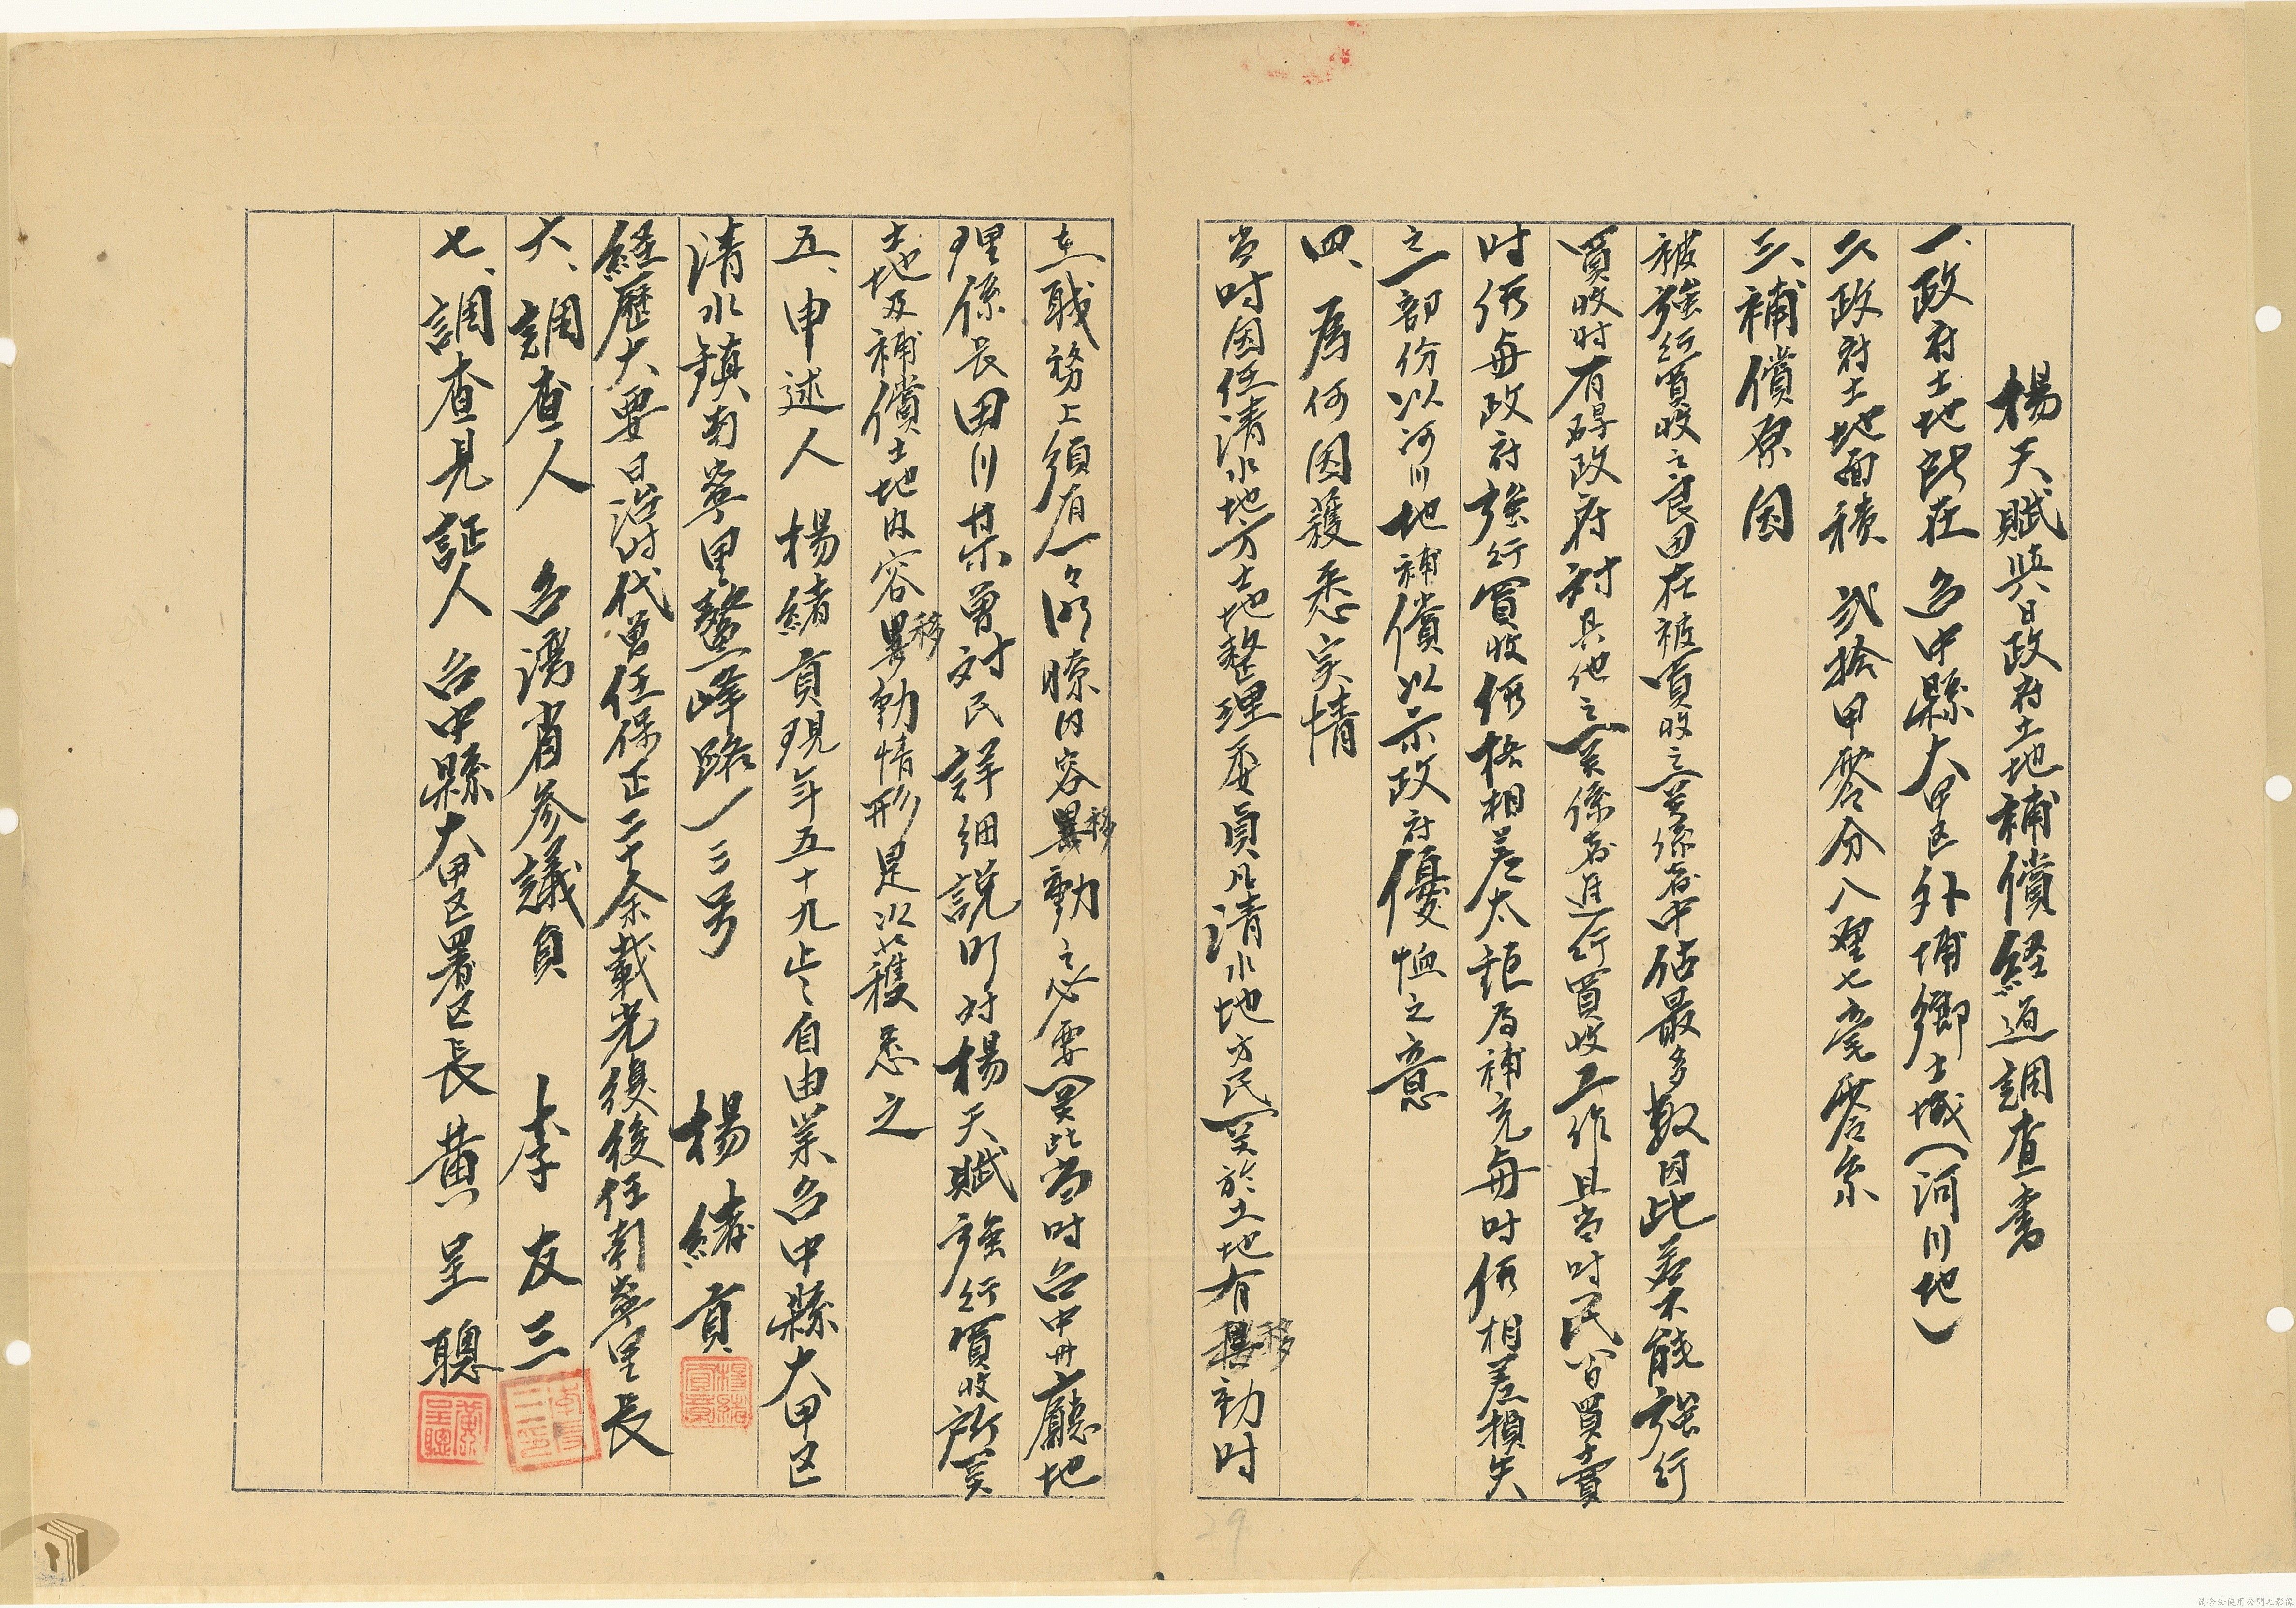 楊天賦與日政府土地補償経過調查書
一、政府土地所在 台中縣大甲区外埔鄉土城(河川地)
二、政府土地面積 弍拾甲零分八厘七毫零糸
三、補償原因
被強行買收之良田在被買收之关係者中佔最多数因此若不能強行
買收时有碍政府对其他之关係者進行買收工作且当时民間買賣
时価與政府強行買收価格相差太鉅為補充與时価相差損失
之一部份以河川地補償以示政府優恤之意
四、為何因獲悉实情
当时因任清水地方土地整理委員凡清水地方民关於土地有移動时
在职務上須有一々明瞭内容移動之必要关此当时台中州廳地
理係長田川某曽对民詳細説明对楊天賦強行買收所关
土地及補償土地内容移動情形是以獲悉之
五、申述人 楊緒貢現年五十九歲自由業台中縣大甲区
清水鎮南寧里鰲峰路一三号 楊緒貢
経歷大要日治时代曽任保正二十余載光復後任南寧里長
六、調查人 台湾省参議員 李友三
七、調查見証人 台中縣大甲区署区長 黄呈聰
楊緒貢章
李友三印
黃呈聰
29
請合法使用公開之影像